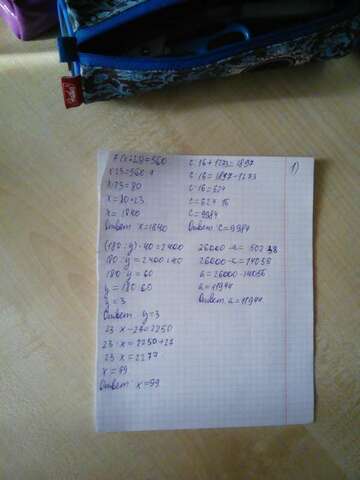 7(x:23)=560
x:23=560:7
x:23=80
x=80·23
x=1840
Ответ x=1840
(180:y)·40=2400
180:y=2400:40
180:y=60
y=180:60
y=3
Ответ y=3
23·x-27=2250
23·x=2250+27
23·x=2277
x=99
Ответ x=99
c:16+1273=1897
c:16=1897-1273
c:16=624
c=624·16
c=9984
Ответ c=9984
26000-a=502
26000-a=14056
a=26000-14056
a=11944
Ответ a=11944
1)